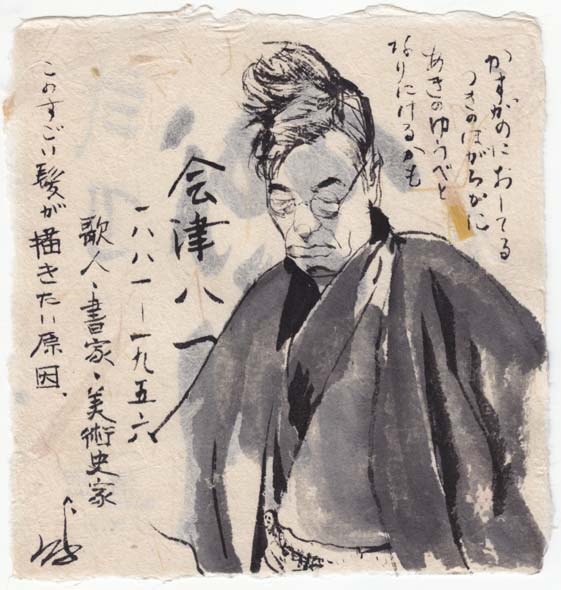 かすがのにおしてる
つきのほがらかに
あきのゆうべと
なりにけるかも
会津八一
一八八一ー一九五六
歌人・書家・美術史家
このすごい髪が描きたい原因、